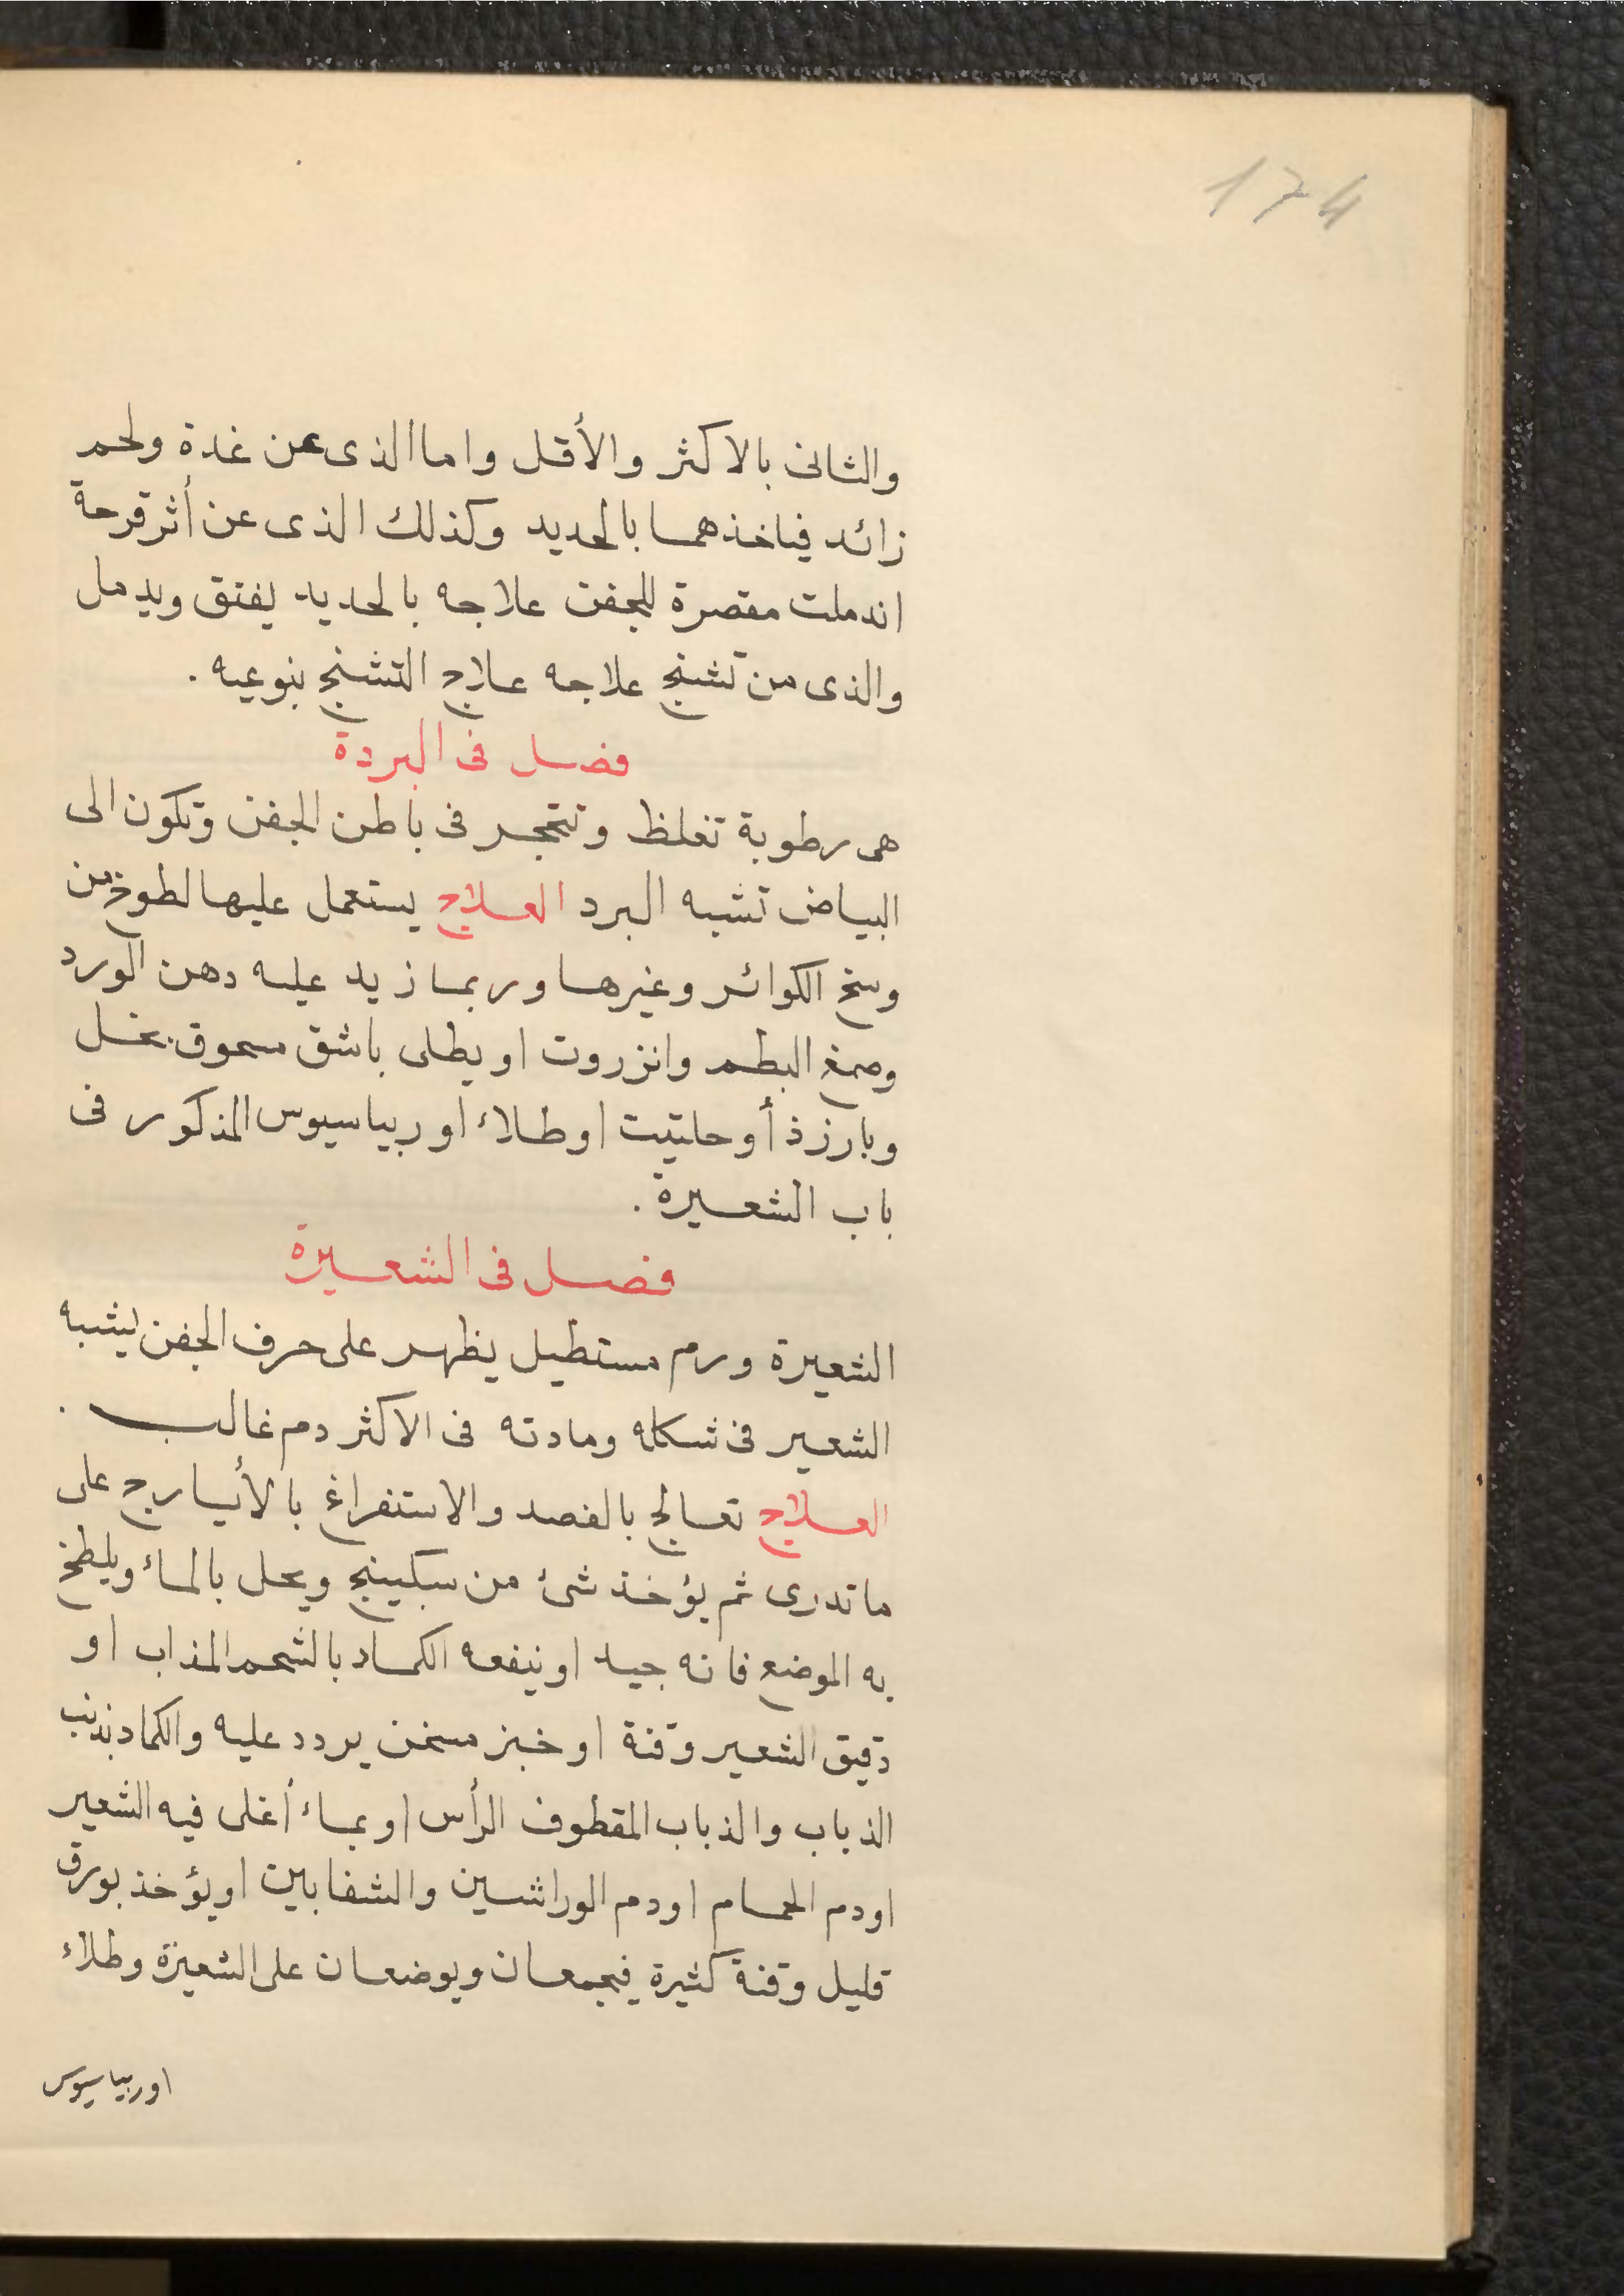 174
والثانى بالاكثر والأقل واما الذى عن غدة ولحم
زائد فياخذهما بالحديد وكذلك الذى عن أثر قرحة
اندملت مقصرة للجفن علاجه بالحديد يفتق ويدمل
والذى من تشنج علاجه علاج التشنج بنوعيه .
فصل فى البردة
هى رطوبة تغلظ وتتحجر فى باطن الجفن وتكون الى
البياض تشبه البرد العلاج يستعمل عليها لطوخ من
وسخ الكوائر وغيرها وربما زيد عليه دهن الورد
وصمغ البطم وانزروت او يطلى باشق مسحوق بخل
وبارزذ أو حلتيت او طلاء اوريباسيوس المذكور فى
باب الشعيرة .
فصل فى الشعيرة
الشعيرة ورم مستطيل يظهر على حرف الجفن يشبه
الشعير فى شكله ومادته فى الاكثر دم غالب .
العلاج تعالج بالفصد والاستفراغ بالأيارج على
ماتدرى ثم يؤخذ شئ من سكبينج ويحل بالماء ويلطخ
به الموضع فانه جيد او ينفعه الكماد بالشحم المذاب او
دقيق الشعير وقنة او خبز مسخن يردد عليه والكماد بذنب
الذباب والذباب المقطوف الرأس او بماء أغلى فيه الشعير
او دم الحمام او دم الوراشين والشفابين او يؤخذ بورق
قليل وقنة كثيرة فيجمعان ويوضعان على الشعيرة وطلاء
اوريباسيوس